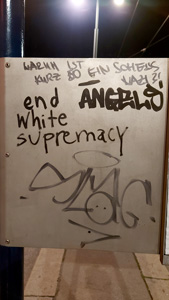 WARUM IST
KURZ SO EIN SCHEISS
NAZI?!
ANGELO
end
white
supremacy